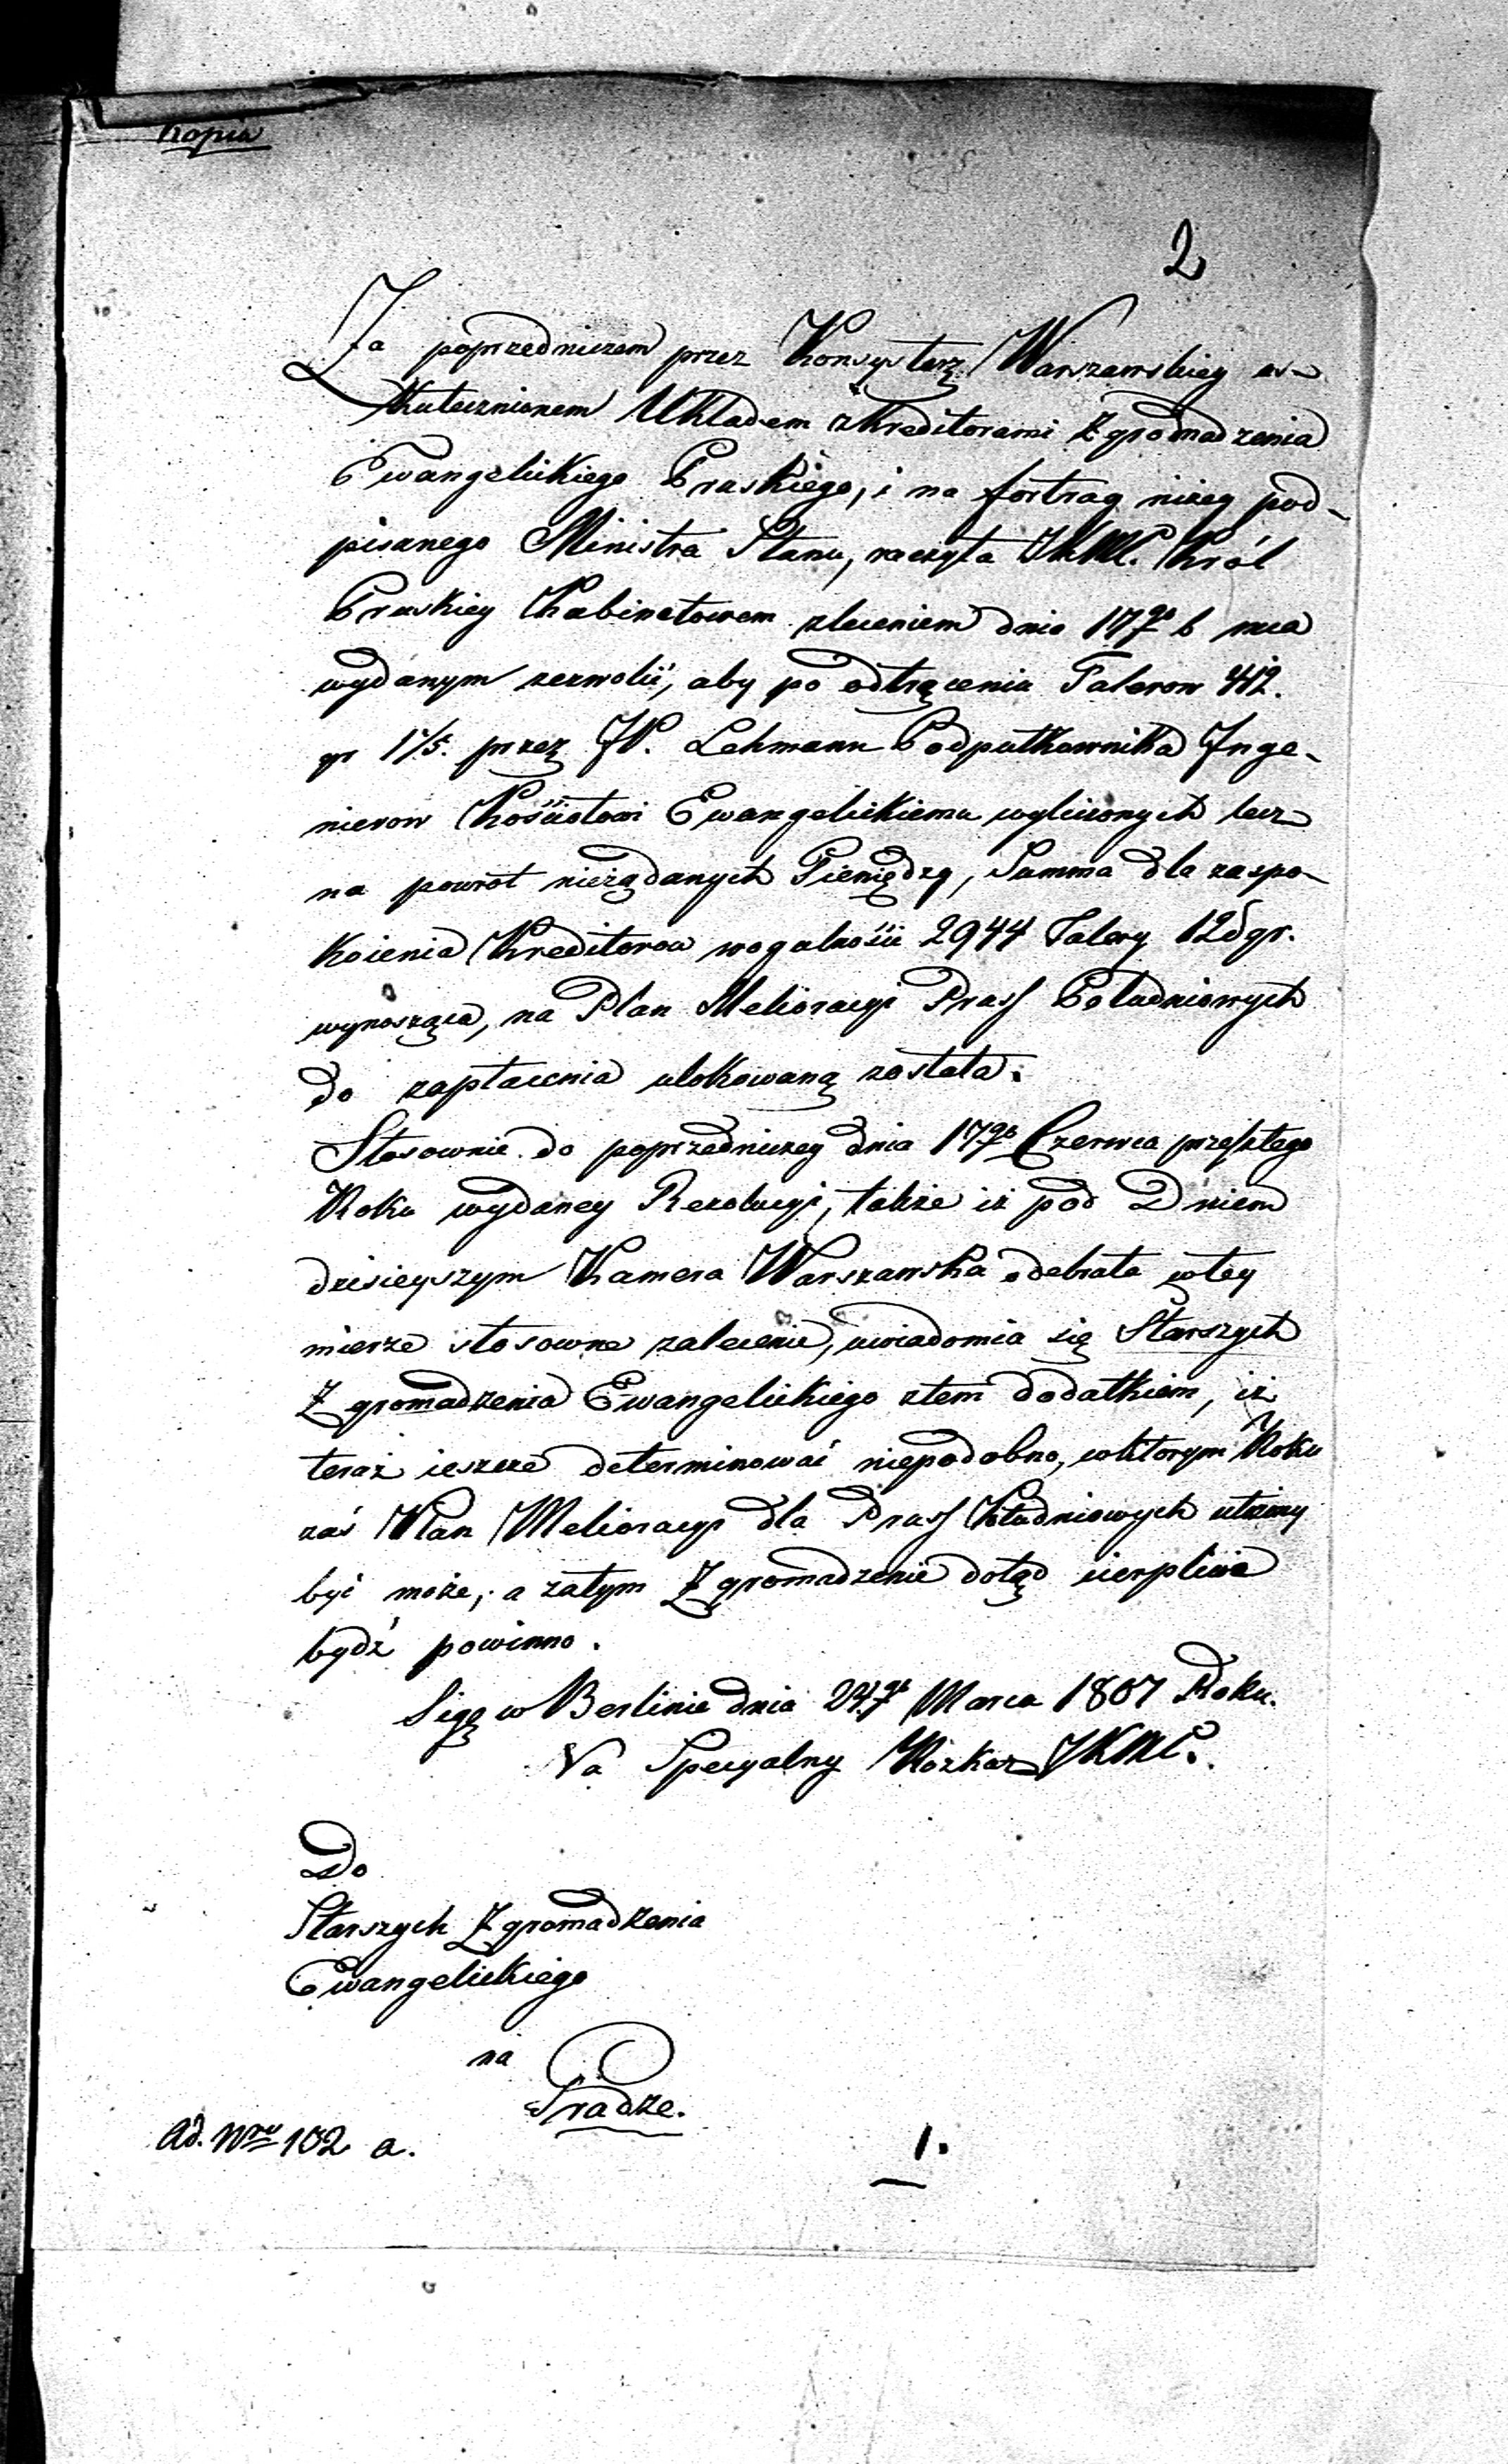 Kopia
2
Za poprzedniczem przez Konsystorz Warszawskiey us-
kutecznionem Układem z Kreditorami Zgromadzenia
Ewangelickiego Praskiego, i na fortrag niżey pod-
pisanego Ministra Stanu, raczyła JKMC. Król
Pruskiey Kabinetowem zleceniem dnia 17go b mca
wydanym zezwolić, aby po odtrąceniu Talerow 412.
gr 1 1/5. przez JP. Lehmann Podpułkownika Inge-
nierow Kościołowi Ewangelickiemu wyliczonych lecz
na powrót nieżądanych Pieniędzy, Summa dla zaspo-
kojenia Kreditorow wogulności 2944 Talery 12 dgr.
wynosząca, na Plan Melioracyi Pruss Południowych
do zapłacenia ulokowaną została.
Stosownie do poprzedniczey dnia 17go Czerwca przeszłego
Roku wydaney Rezolucyi, także iż pod Dniem
dzisieyszym Kamera Warszawska odebrała w tey
mierze stosowne zalecenie, uwiadomia się Starszych
Zgromadzenia Ewangelickiego z tem dodatkiem, iż
teraz ieszcze determinować niepodobno, w którym Roku
zaś Plan Melioracyi dla Pruss Południowych
być może; a zatym Zgromadzenie dotąd cierpliwe
bydź powinno.
Sig w Berlinie dnia 24go Marca 1801 Roku.
Na Specyalny Rozkaz JKMC.
Do
Starszych Zgromadzenia
Ewangelickiego
na
Pradze.
Ad. Nru 102 a.
1.